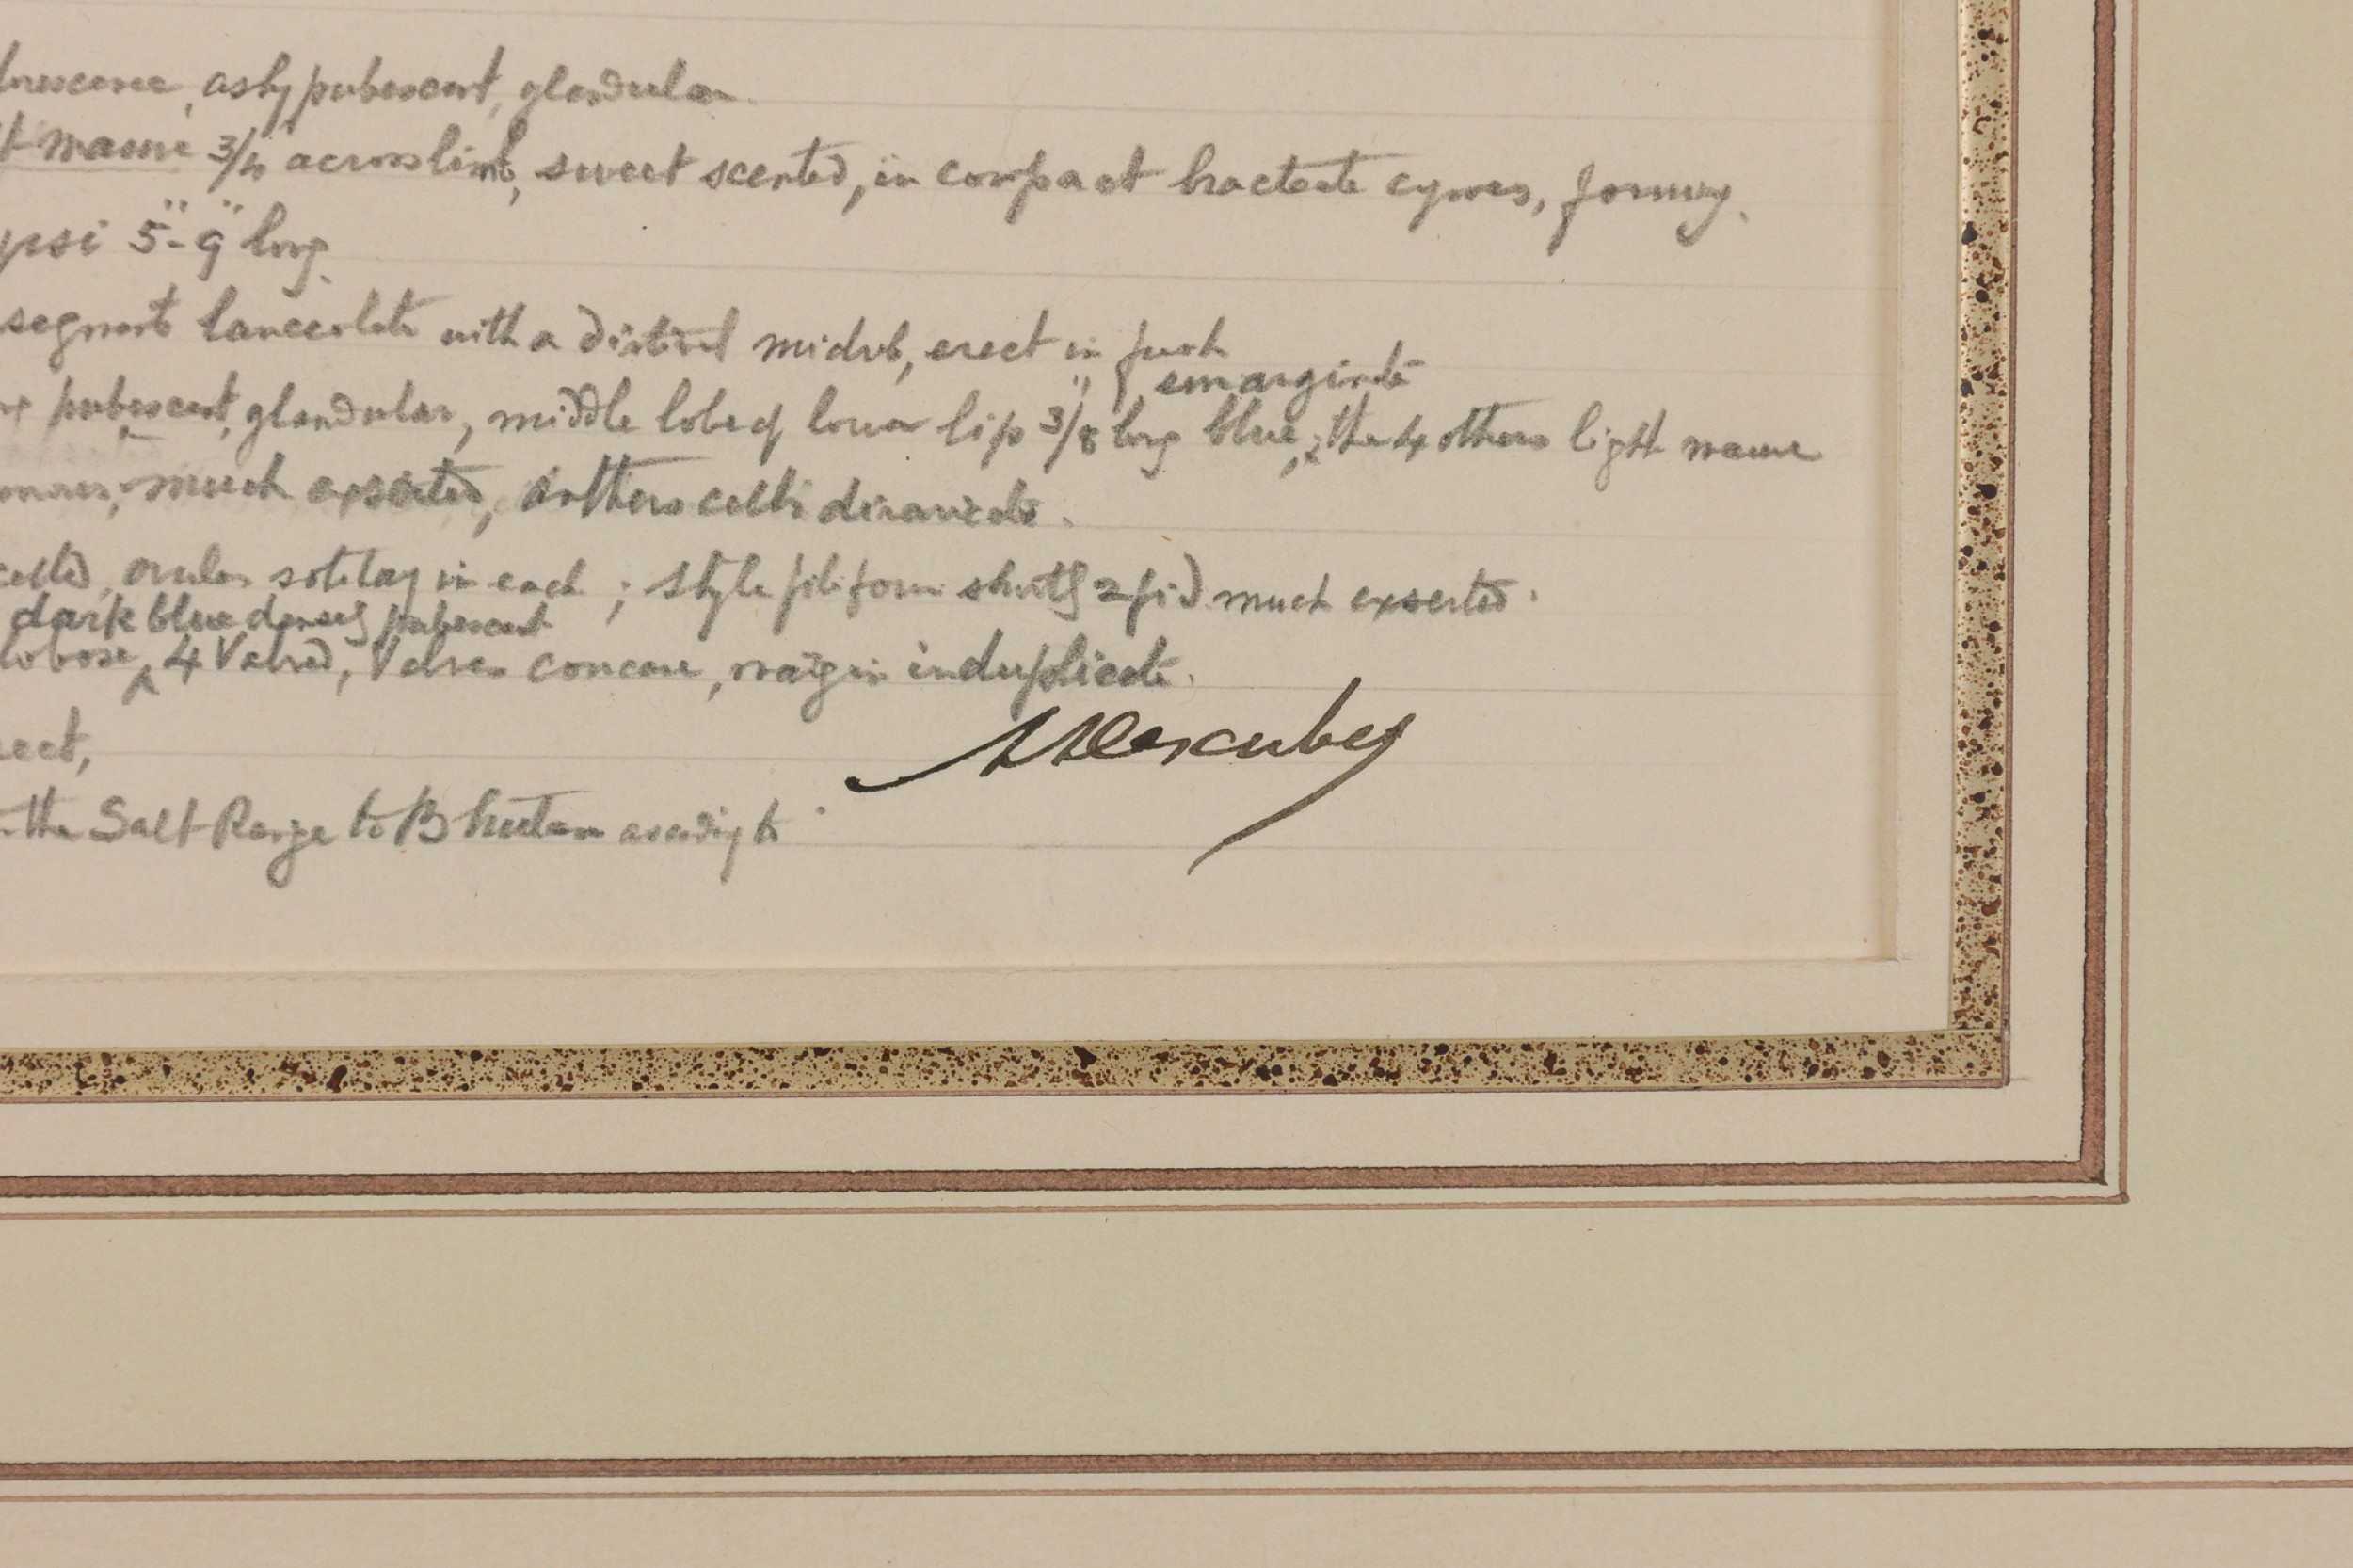 ashy pubescent, glandular.
mauve 3/4 across limb, sweet scented, in compact bracteate cymes, forming
5"-9" long.
segments lanceolate with a distinct midrib, erect in fruit
emarginate
pubescent, glandular, middle lobe of lower lip 3/8" long blue, the 4 others light mauve
much exserted, anthers cells divaricate.
celled, ovules solitary in each ; style filiform shortly 2 fid much exserted.
dark blue densely pubescent
4 Valved, Valves concave, margin induplicate.
the Salt Range to Bhutan ascending to